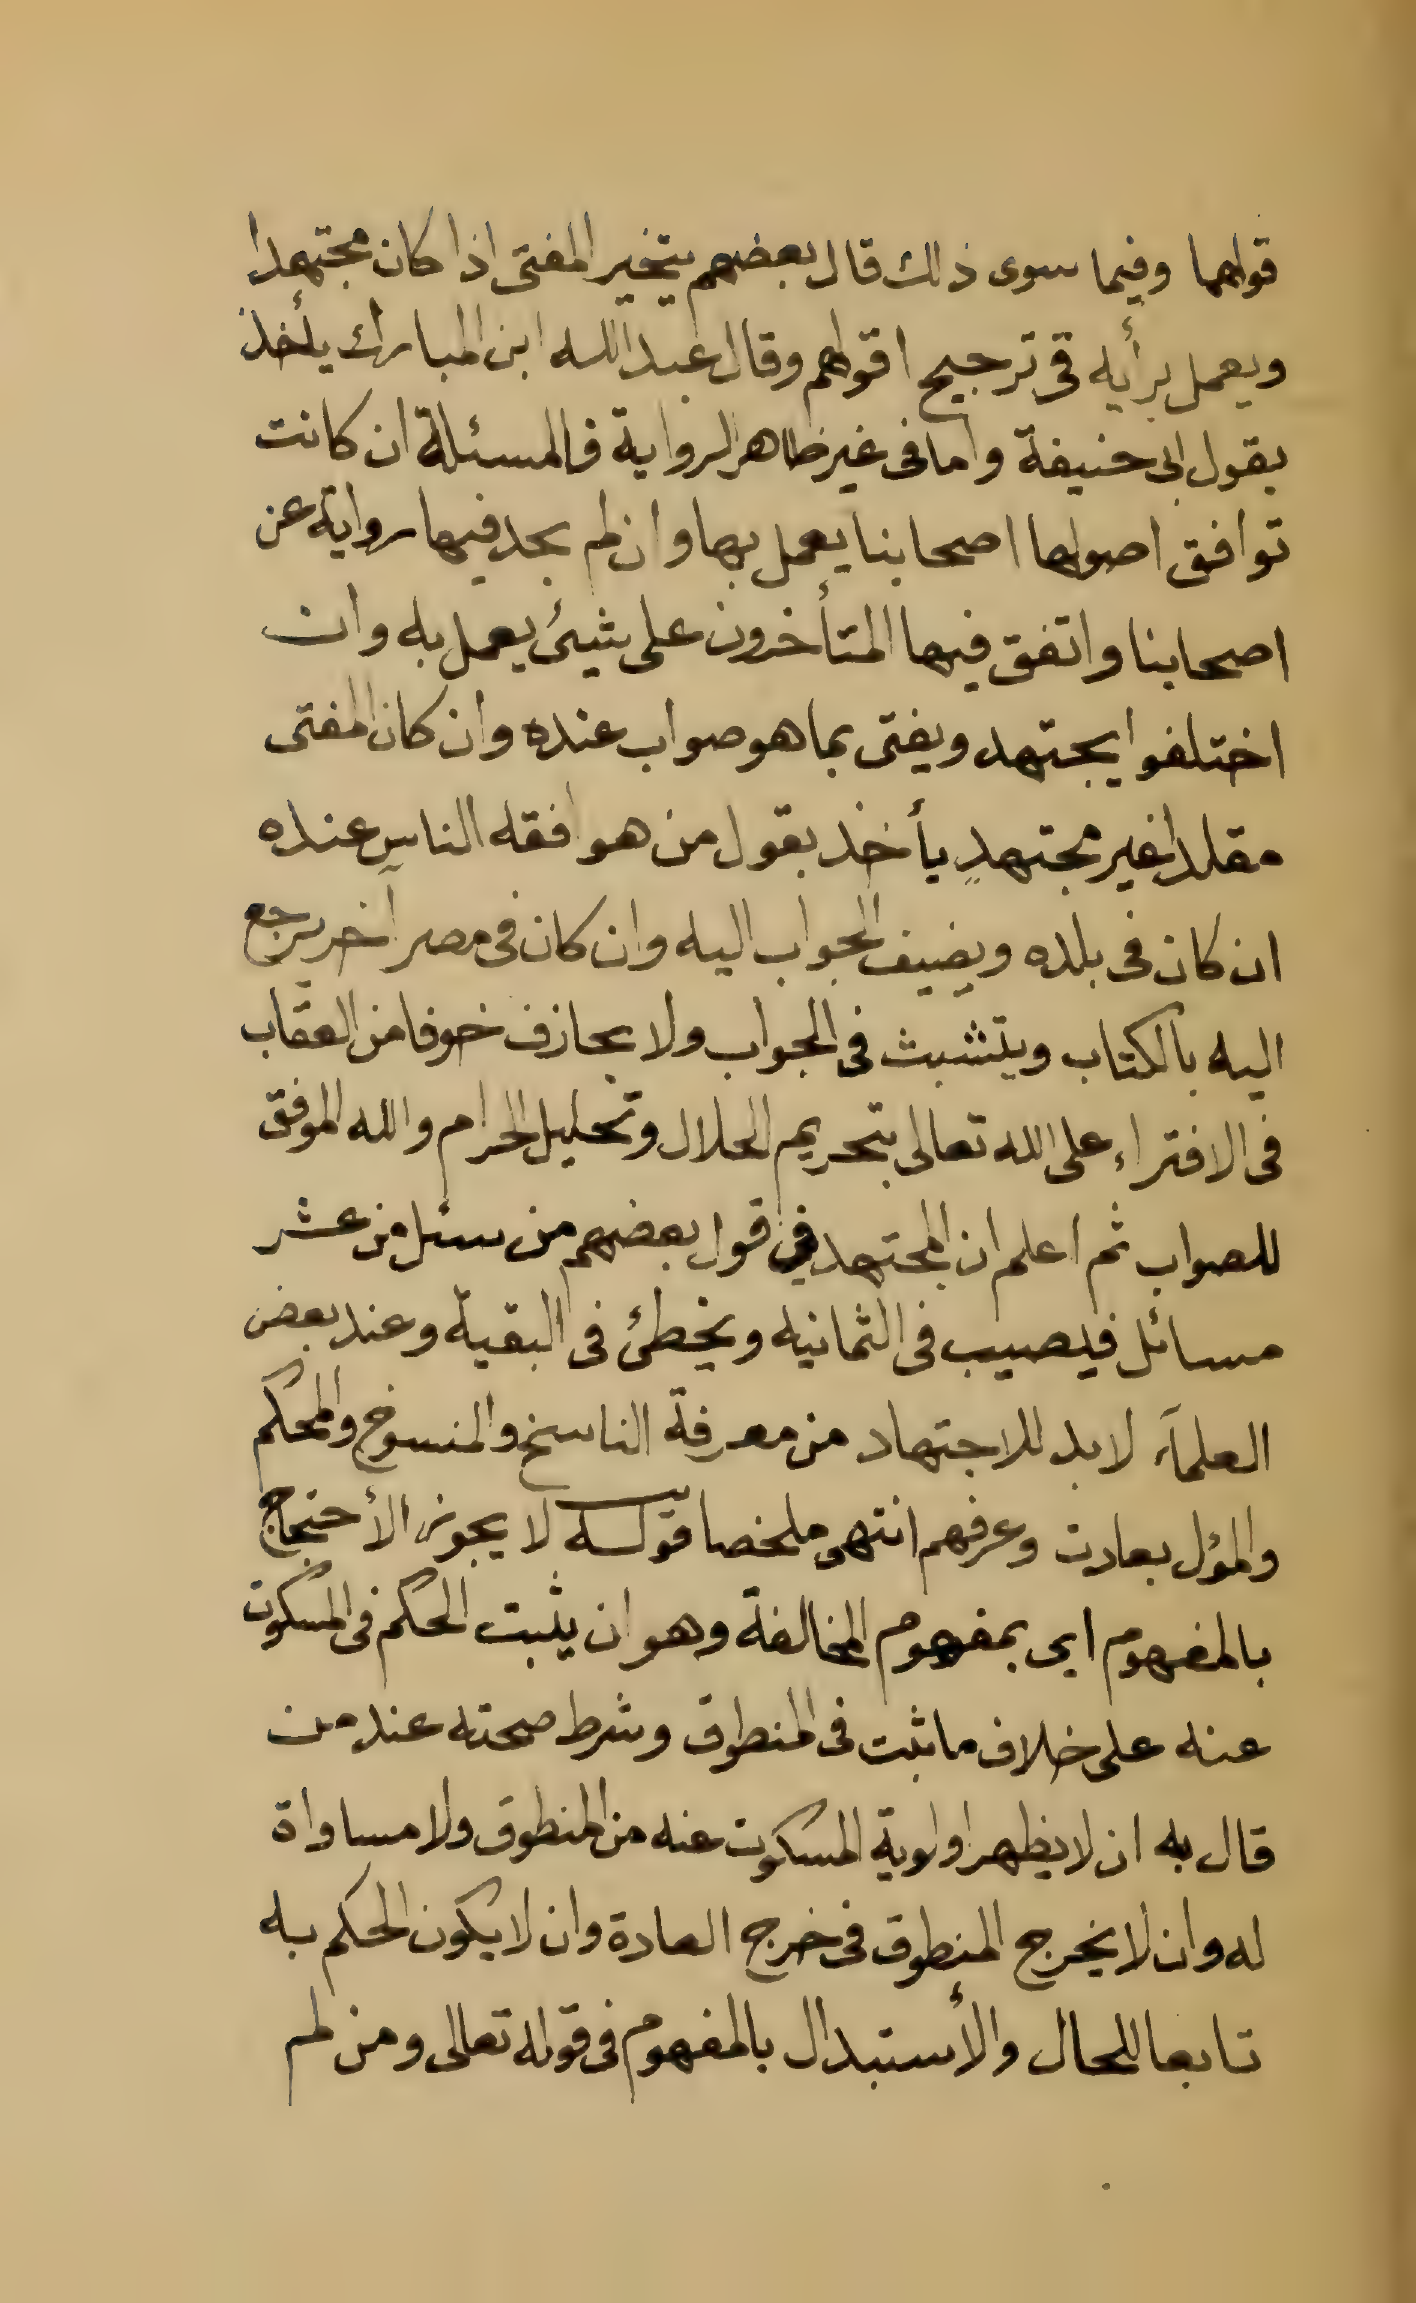 قولهما وفيما سوى ذلك قال بعضهم يتخير المفتى اذا كان مجتهدا
ويعمل برأيه فى ترجيح اقوالهم وقال عبد الله ابن المبارك يأخذ
بقول ابى حنيفة واما فى غير ظاهر الرواية فالمسئلة ان كانت
توافق اصولها اصحابنا يعمل بها وان لم يجد فيها رواية عن
اصحابنا واتفق فيها المتأخرون على شيئ يعمل به وان
اختلفوا يجتهد ويفتى بما هو صواب عنده وان كان المفتى
مقلدا غير مجتهدٍ يأخذ بقول من هو افقه الناس عنده
ان كان فى بلده ويضيف الجواب اليه وان كان فى مصر آخر يرجع
اليه بالكتاب ويتشبث فى الجواب ولا يجازف خوفا من العقاب
فى الافتراء على الله تعالى بتحريم الحلال وتحليل الحرام والله الموفق
للصواب ثم اعلم ان المجتهد فى قول بعضهم من سئل من عشر
مسائل فيصيب فى الثمانيه ويخطئ فى البقية وعند بعض
العلمآء لابد للاجتهاد من معرفة الناسخ والمنسوخ والمحكم
والمؤل بعادت وعرفهم انتهى ملخصا قوله لا يجوز الأحتجاج
بالمفهوم اى بمفهوم المخالفة وهو ان يثبت الحكم فى المسكوت
عنه على خلاف ما ثبت فى المنطوق وشرط صحته عند من
قال به ان لا يظهر اولوية المسكوت عنه من المنطوق ولا مساواة
له وان لا يخرج المنطوق فى خرج العادة وان لا يكون الحكم به
تابعا للحال والأستبدال بالمفهوم فى قوله تعالى ومن لم